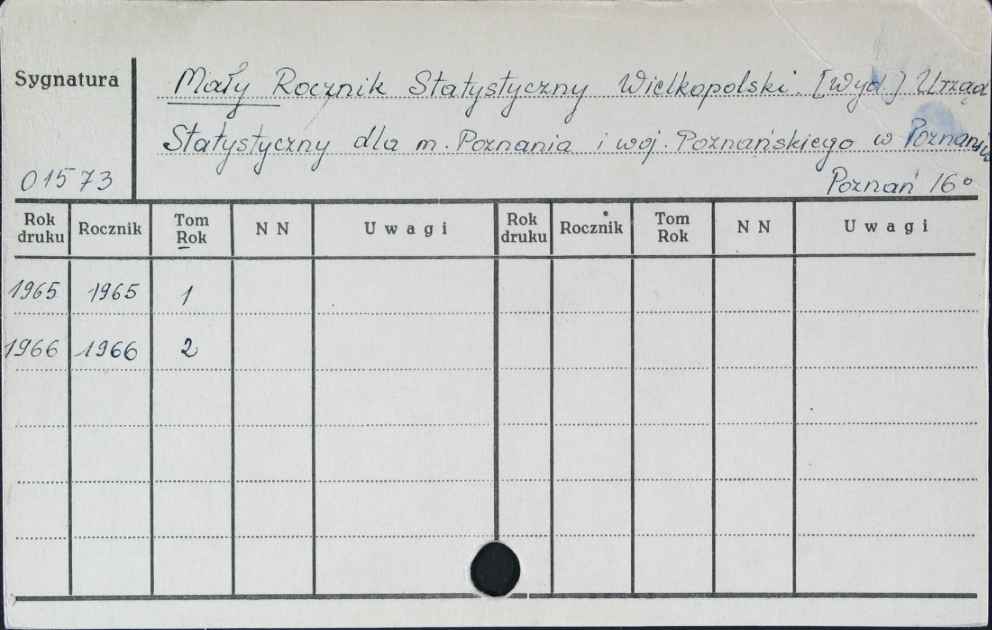 Sygnatura
Mały Rocznik Statystyczny Wielkopolski. [Wyd.] Urząd
Statystyczny dla m. Poznania i woj. Poznańskiego w Poznaniu
01573
Poznań 16°
Rok druku Rocznik Tom Rok NN Uwagi Rok druku Rocznik Tom Rok NN Uwagi
1965 1965 1
1966 1966 2